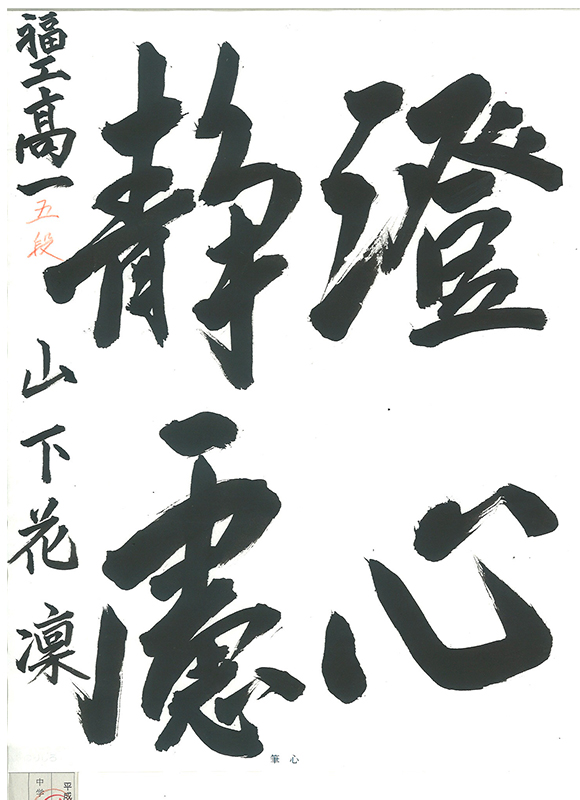 澄心
静慮
福工高一
五段
山下花凜
心筆
平成
中学